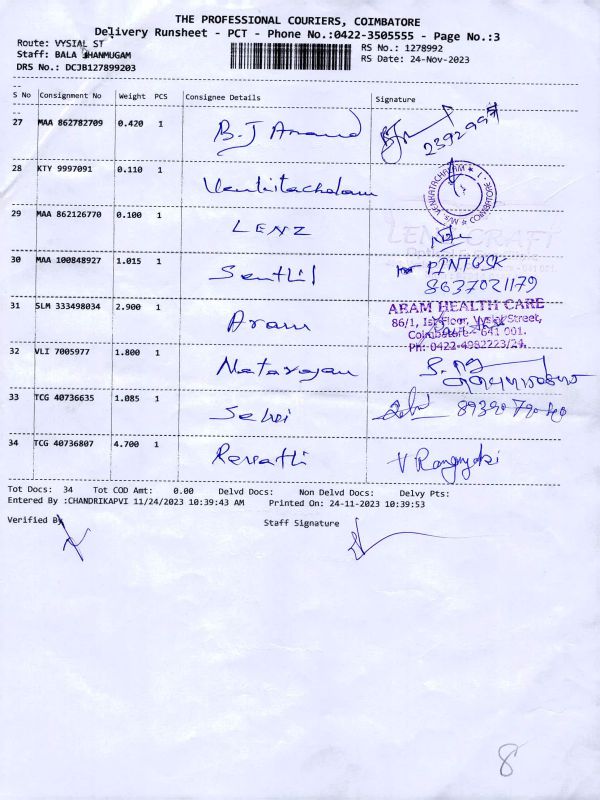 THE PROFESSIONAL COURIERS, COIMBATORE
Delivery Runsheet - PCT - Phone No.:0422-3505555 - Page No.:3
Route: VYSIAL ST RS No.: 1278992
Staff: BALA SHANMUGAM RS Date: 24-Nov-2023
DRS No.: DCJB127899203
S No Consignment No Weight PCS Consignee Details Signature
27 MAA 862782709 0.420 1 B.J Anand
28 KTY 9997091 0.110 1 Venkitachalam
29 MAA 862126770 0.100 1 LENZ
30 MAA 100848927 1.015 1 Senthil PINTUSK
8637021179
31 SLM 333498034 2.900 1 Aram ARAM HEALTH CARE
86/1, Ist Floor, Vysial Street,
Coimbatore - 641 001.
Ph: 0422-4982223/24.
32 VLI 7005977 1.800 1 Natarajan
33 TCG 40736635 1.085 1 Selvi
34 TCG 40736807 4.700 1 Revathi
Tot Docs: 34 Tot COD Amt: 0.00 Delvd Docs: Non Delvd Docs: Delvy Pts:
Entered By :CHANDRIKAPVI 11/24/2023 10:39:43 AM Printed On: 24-11-2023 10:39:53
Verified By Staff Signature
8